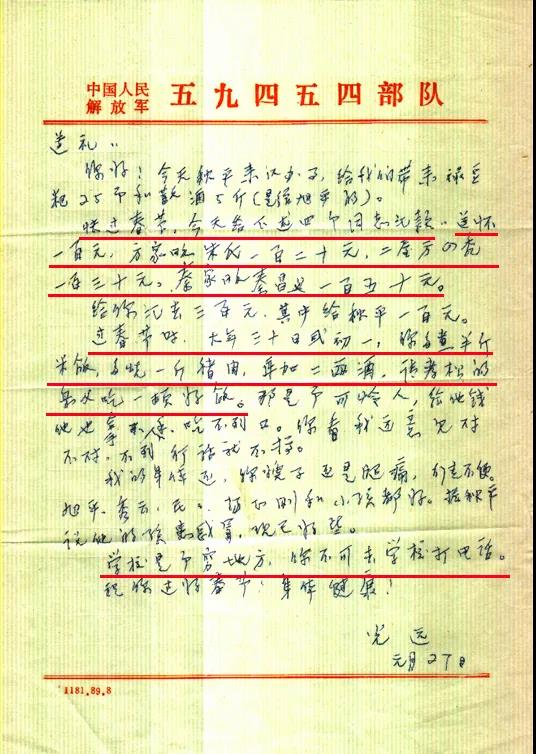 中国人民
解放军 五九四五四部队
送礼：
你好！今天秋平来汉办了，给我们带来绿豆
粑25斤和散酒5斤（是给旭平的）。
快过春节，今天给下述四个同志汇款：送怀
一百元，方家咀朱氏一百二十元，二屋方四香
一百三十元。秦家咀秦昌 一百五十元。
给你汇去三百元，其中给秋平一百元。
过春节时，大年三十日或初一，你多煮半斤
米饭，多烧一斤猪肉，再加二两酒，请孝松的
叔父吃一顿好饭。那是个可怜人，给他钱
他也拿不住，吃不到口。你看我这意见对
不对，不到行话就不搞。
我的身体还，你嫂子还是腿痛，行走不便。
旭平、秀云、 和小孩都好。据秋平
说他的孩 感冒，现已好些。
学校是个穷地方，你不可去学校打电话。
祝你过好春节！身体健康！
光远
元月27日
1181.89.8